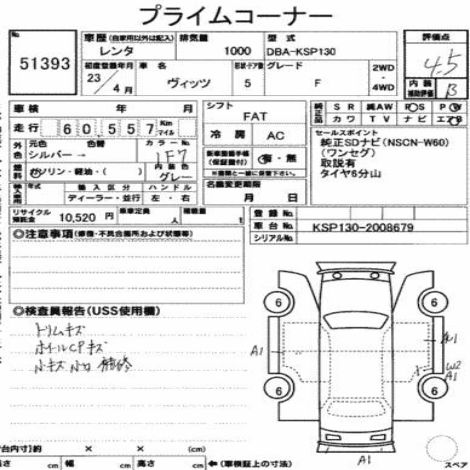 プライムコーナー
No. 51393
車歴(自家用以外は記入) 排気量 型式
レンタ 1000 DBA-KSP130
評価点 4.5
初度登録年月 車名 形状・ドア数 グレード 2WD・4WD
23年 4月 ヴィッツ 5 F
内装 補助評価 B
車検 年 月
シフト FAT
純正品 SR 純AW PS PW
カワ TV ナビ エアB
走行 60,557 Km マイル
冷房 AC
セールスポイント
純正SDナビ(NSCN-W60)
(ワンセグ)
取説有
タイヤ6分山
外色 元色 色替 カラーNo.
シルバー→ 1F7
燃料 ガソリン・軽油・( ) 内装色 グレー
新車整備手帳(保証書付) 有・無
※書類と一緒に保管下さい。
輸入車 年式 輸入区分 ハンドル
ディーラー・並行 左・右
名義変更期限
月 日
リサイクル預託金 10,520円 乗車定員 人 積載量 t
登録No.
車台No. KSP130-2008679
シリアルNo.
◎注意事項(修復・不具合箇所および状態等)
◎検査員報告(USS使用欄)
トリムキズ
ホイールCPキズ
小キズ 小凹 補修
6 6
A1 A1 W2 A1
6 6
A1
スペア
台内寸) 約 × × cm
長さ cm 幅 cm 高さ cm ←(車検証上の寸法)